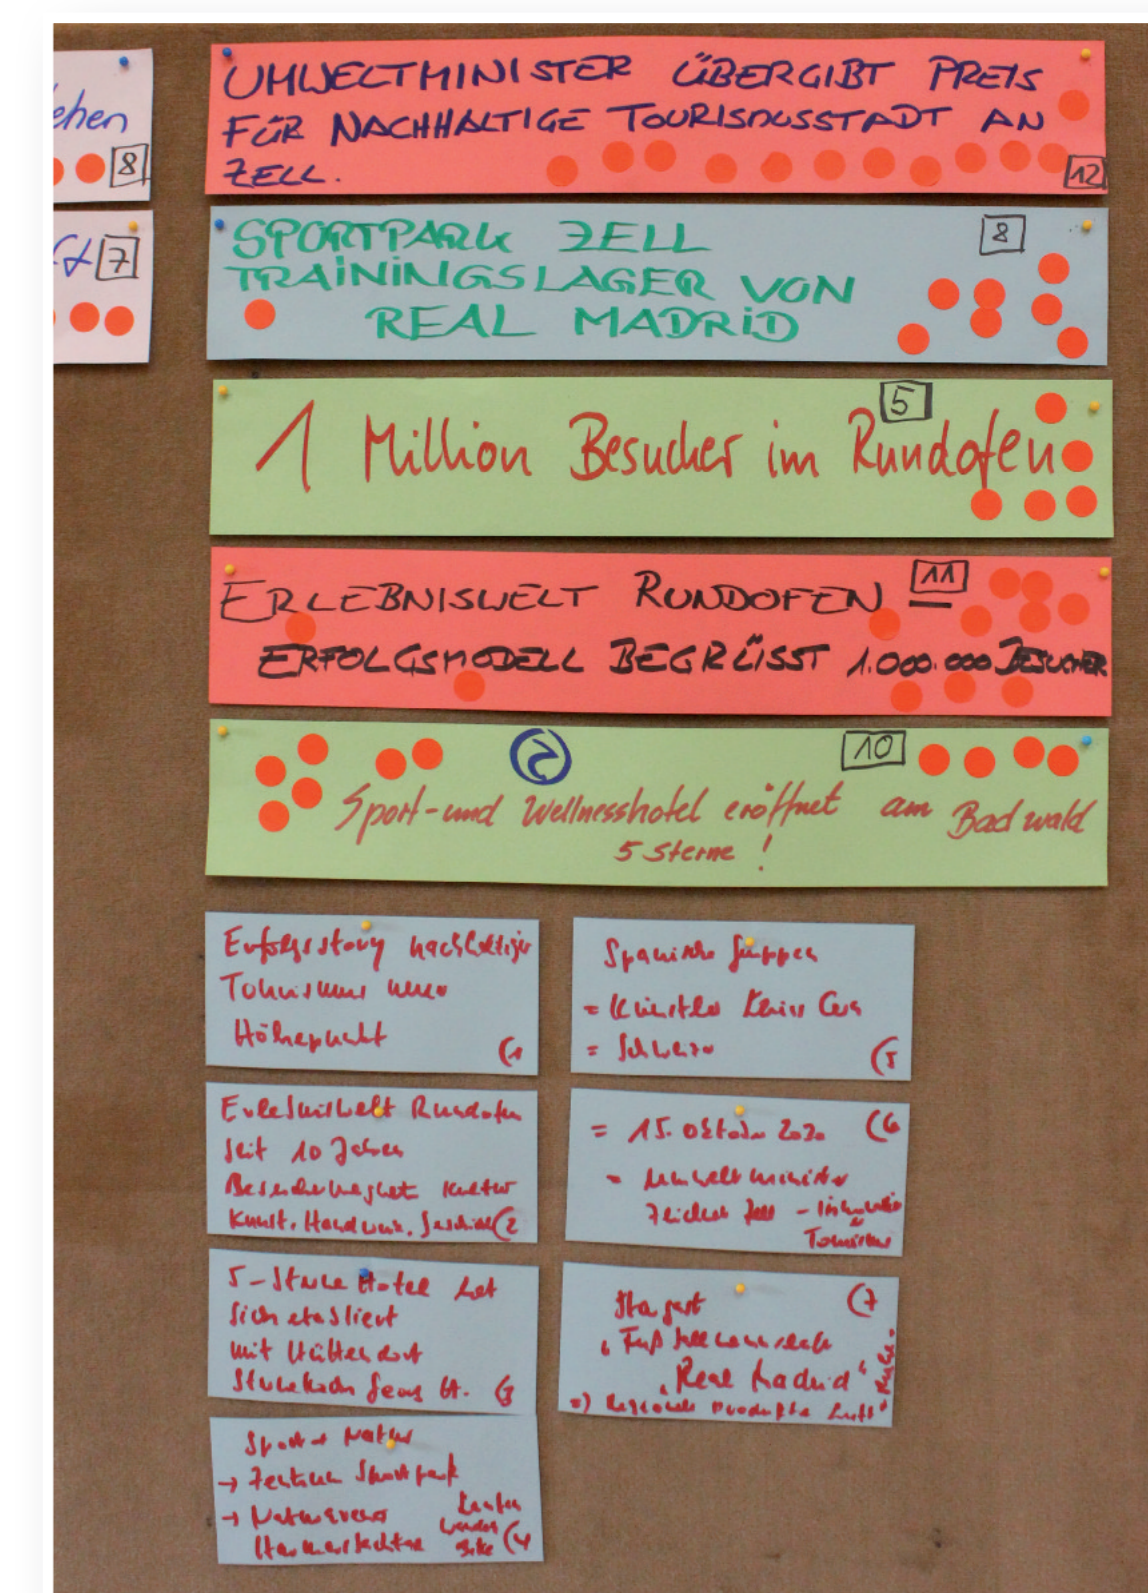 ehen
8
7
UMWELTMINISTER ÜBERGIBT PREIS
FÜR NACHHALTIGE TOURISMUSSTADT AN
ZELL.
12
SPORTPARK ZELL
8
TRAININGSLAGER VON
REAL MADRID
5
1 Million Besucher im Rundofen
ERLEBNISWELT RUNDOFEN –
11
ERFOLGSMODELL BEGRÜSST 1.000.000 BESUCHER
2
10
Sport- und Wellnesshotel eröffnet am Badwald
5 Sterne !
Erfolgsstory nachhaltiger
Tourismus neuer
Höhepunkt
(1
Erlebniswelt Rundofen
seit 10 Jahren
Besuchermagnet Kultur
Kunst, Handwerk, Geschichte (2
5-Sterne Hotel hat
sich etabliert
mit Hüttendorf
Sternekoch Georg (3
Sport + Natur
→ Zentrum Sportpark
→
Harmersbachtal
(4
Spanische Gruppen
= Künstler
=
(5
= 15. Oktober 2030 (6
= Umweltminister
Zell –
Tourismus
Stargast (7
"Real Madrid"
=) Regionale Produkte Luft